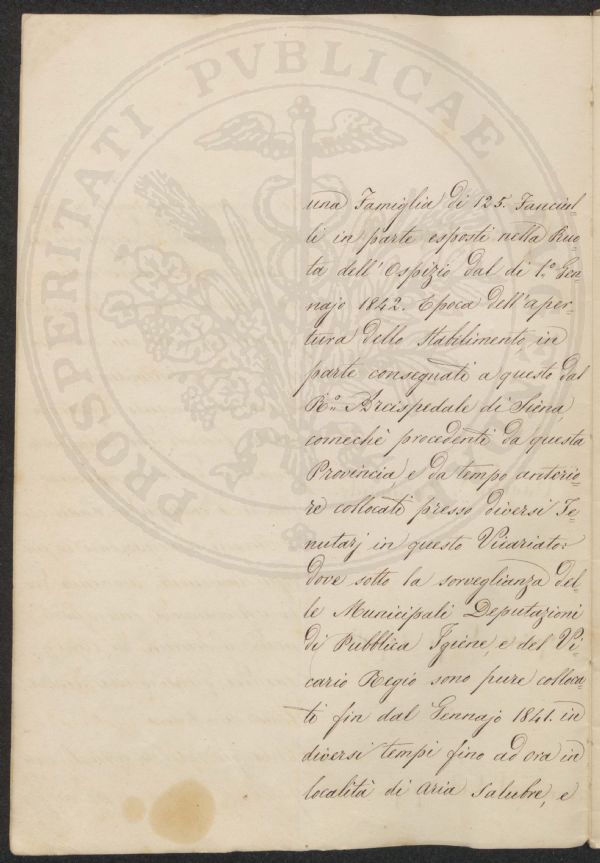 PROSPERITATI PVBLICAE
una Famiglia di 125. Fanciul-
li in parte esposti nella Ruo-
ta dell'Ospizio dal di 1.º Gen-
najo 1842. Epoca dell'aper-
tura dello Stabilimento, in
parte consegnati a questo dal
R.º Arcispedale di Siena,
comechè procedenti da questa
Provincia, e da tempo anterio-
re collocati presso diversi Te-
nutarj in questo Vicariato:
dove sotto la sorveglianza del-
le Municipali Deputazioni
di Pubblica Igiene, e del Vi-
cario Regio sono pure colloca-
ti fin dal Gennajo 1841. in
diversi tempi fino ad ora in
località di aria salubre, e